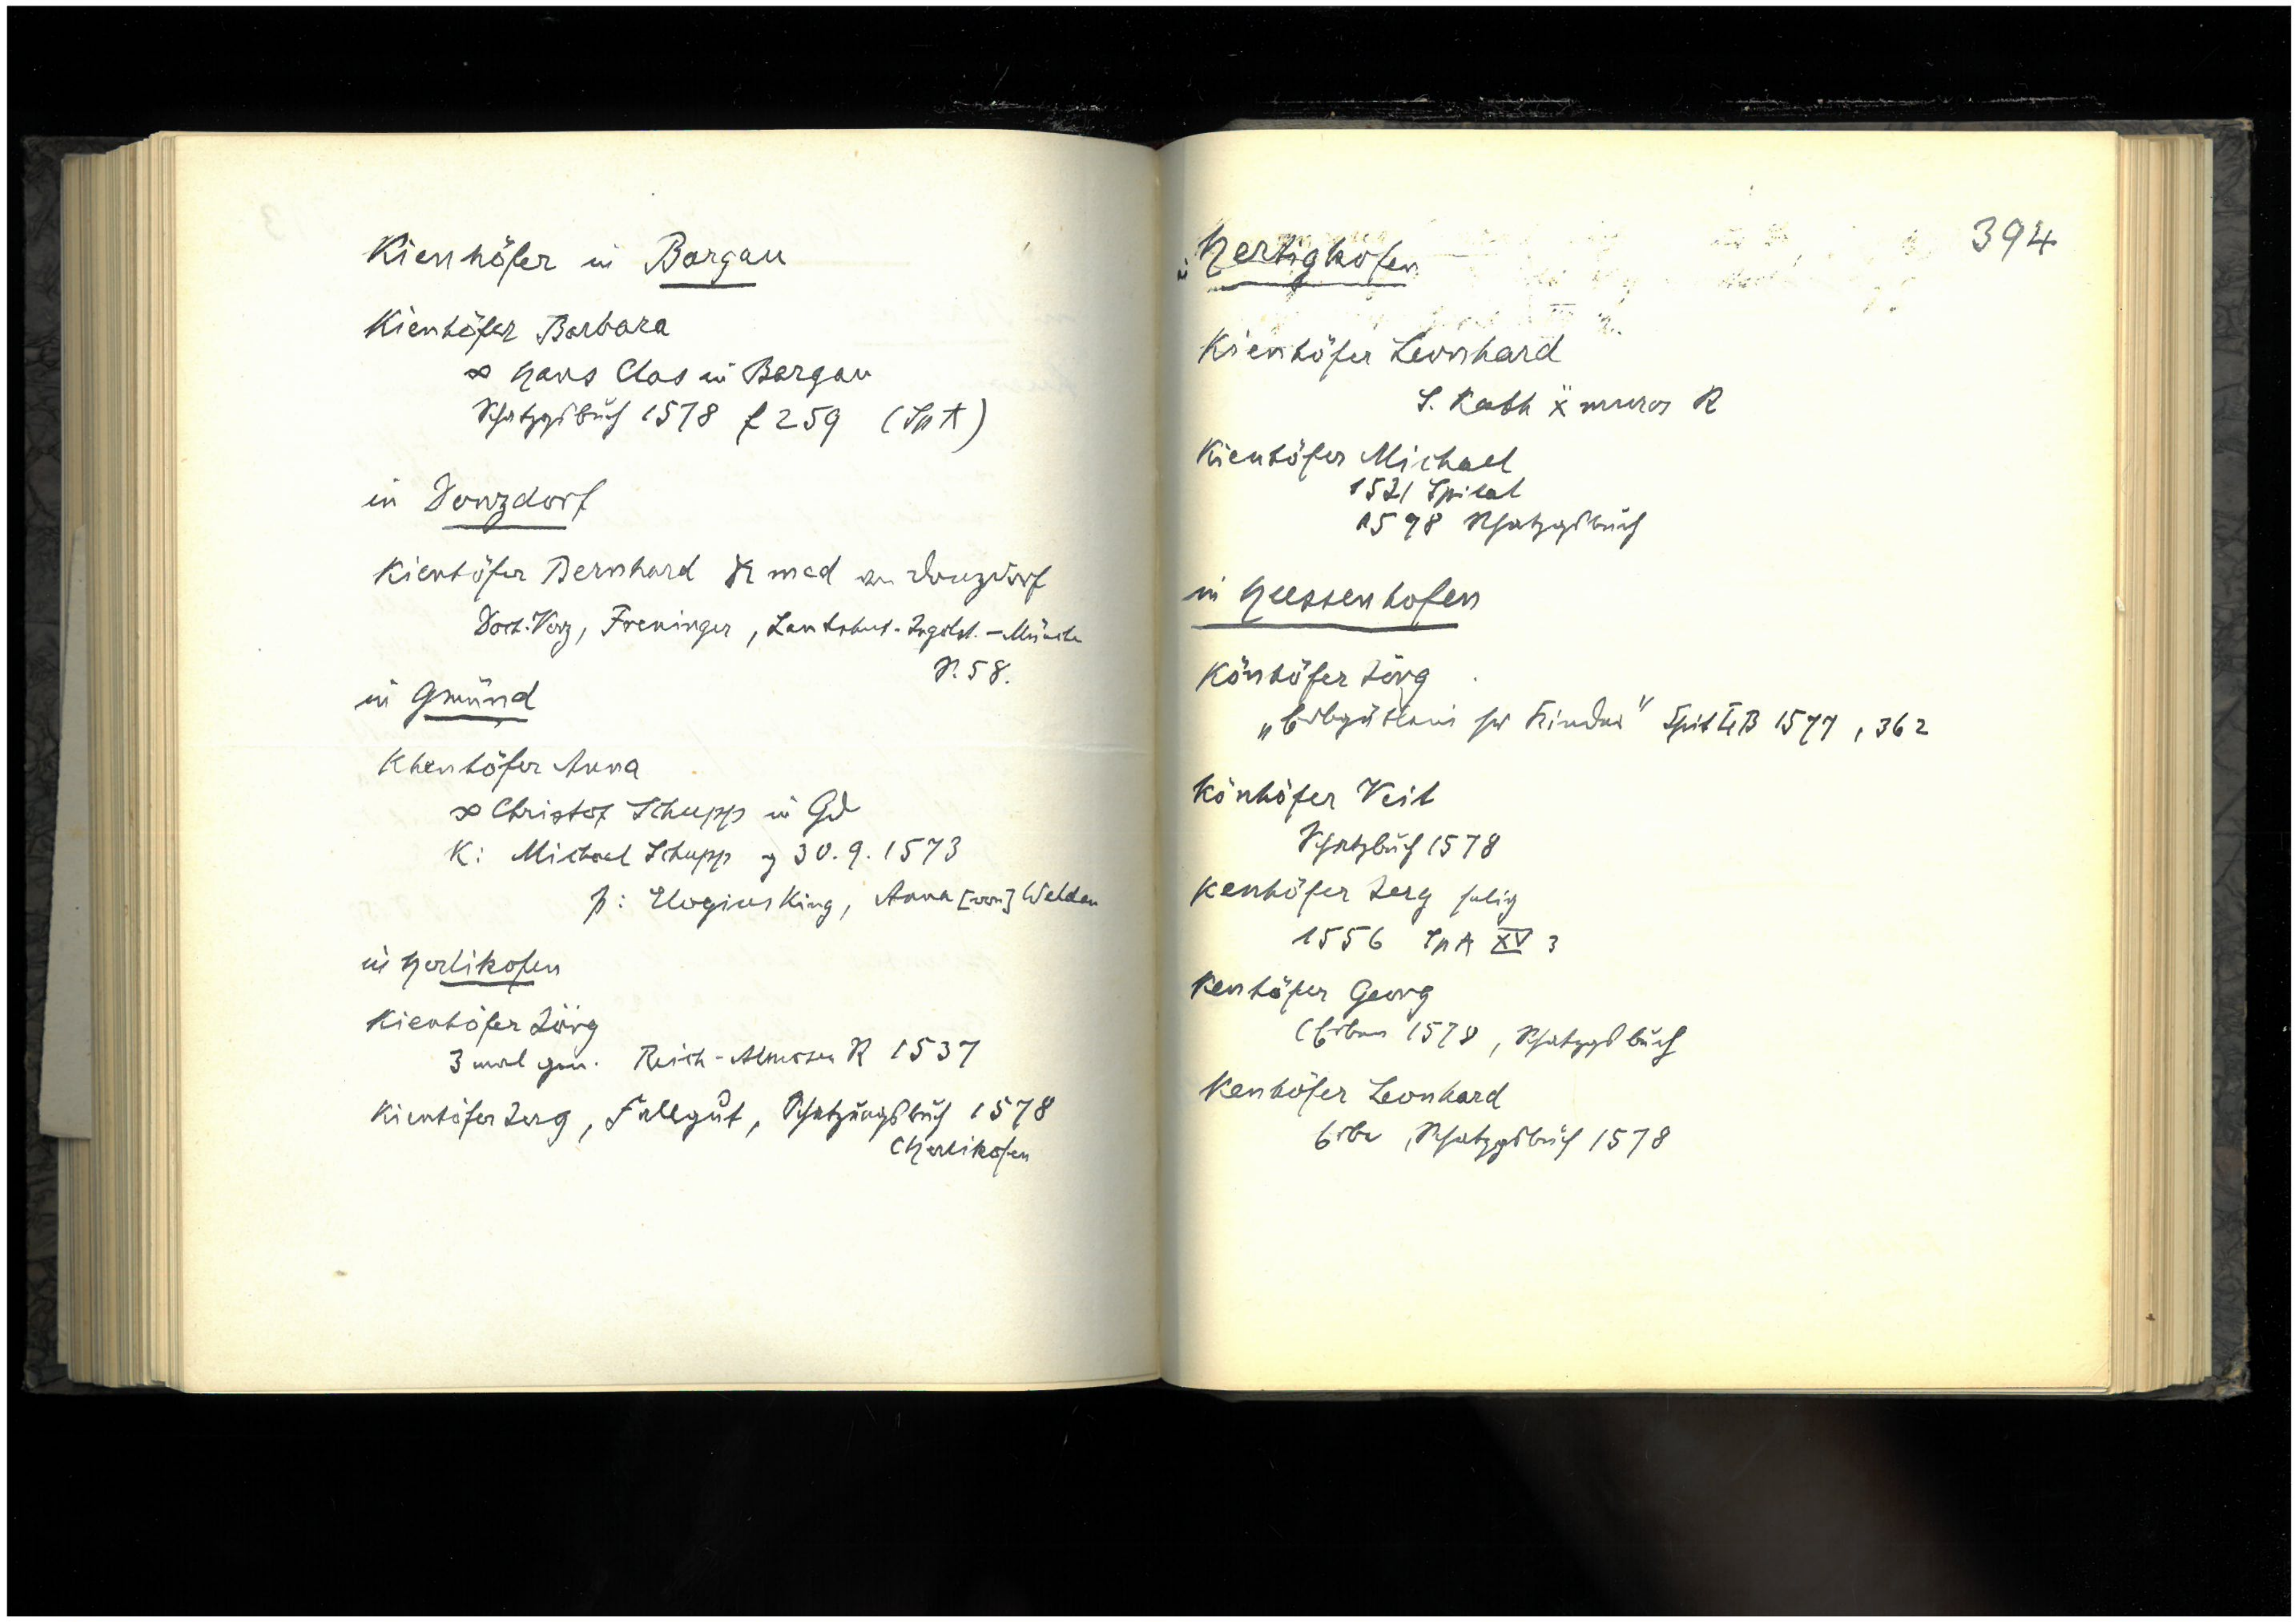 Kienhöfer in Bargau
Kienhöfer Barbara
∞ Hans Clos in Bargau
Schatzgsbuch 1578 f 259 (SpA)
in Donzdorf
Kienhöfer Bernhard med Donzdorf
Freninger, Landshut-Ingolst.-Münche
S. 58.
in Gmünd
Khenhöfer Anna
∞ Christof Schupp in Gd
K: Michael Schupp 30.9.1573
p: Elogius King, Anna [von] Welden
in Herlikofen
Kienhöfer Jörg
3 mal gen. Reich-Almosen R 1537
Kienhöfer Jerg, Fallgut, Schatzungsbuch 1578
(Herlikofen
394
in Hertighofen
Kienhöfer Leonhard
S. Kath muros R
Kienhöfer Michael
1521 Spital
1598 Schatzgsbuch
in Hussenhofen
Könhöfer Jörg
" Kinder" Spit LB 1577, 362
Könhöfer Veit
Schatzbuch 1578
Kenhöfer Jerg selig
1556 SpA XV 3
Kenhöfer Georg
(Erben 1578, Schatzgsbuch
Kenhöfer Leonhard
Erbe, Schatzgsbuch 1578